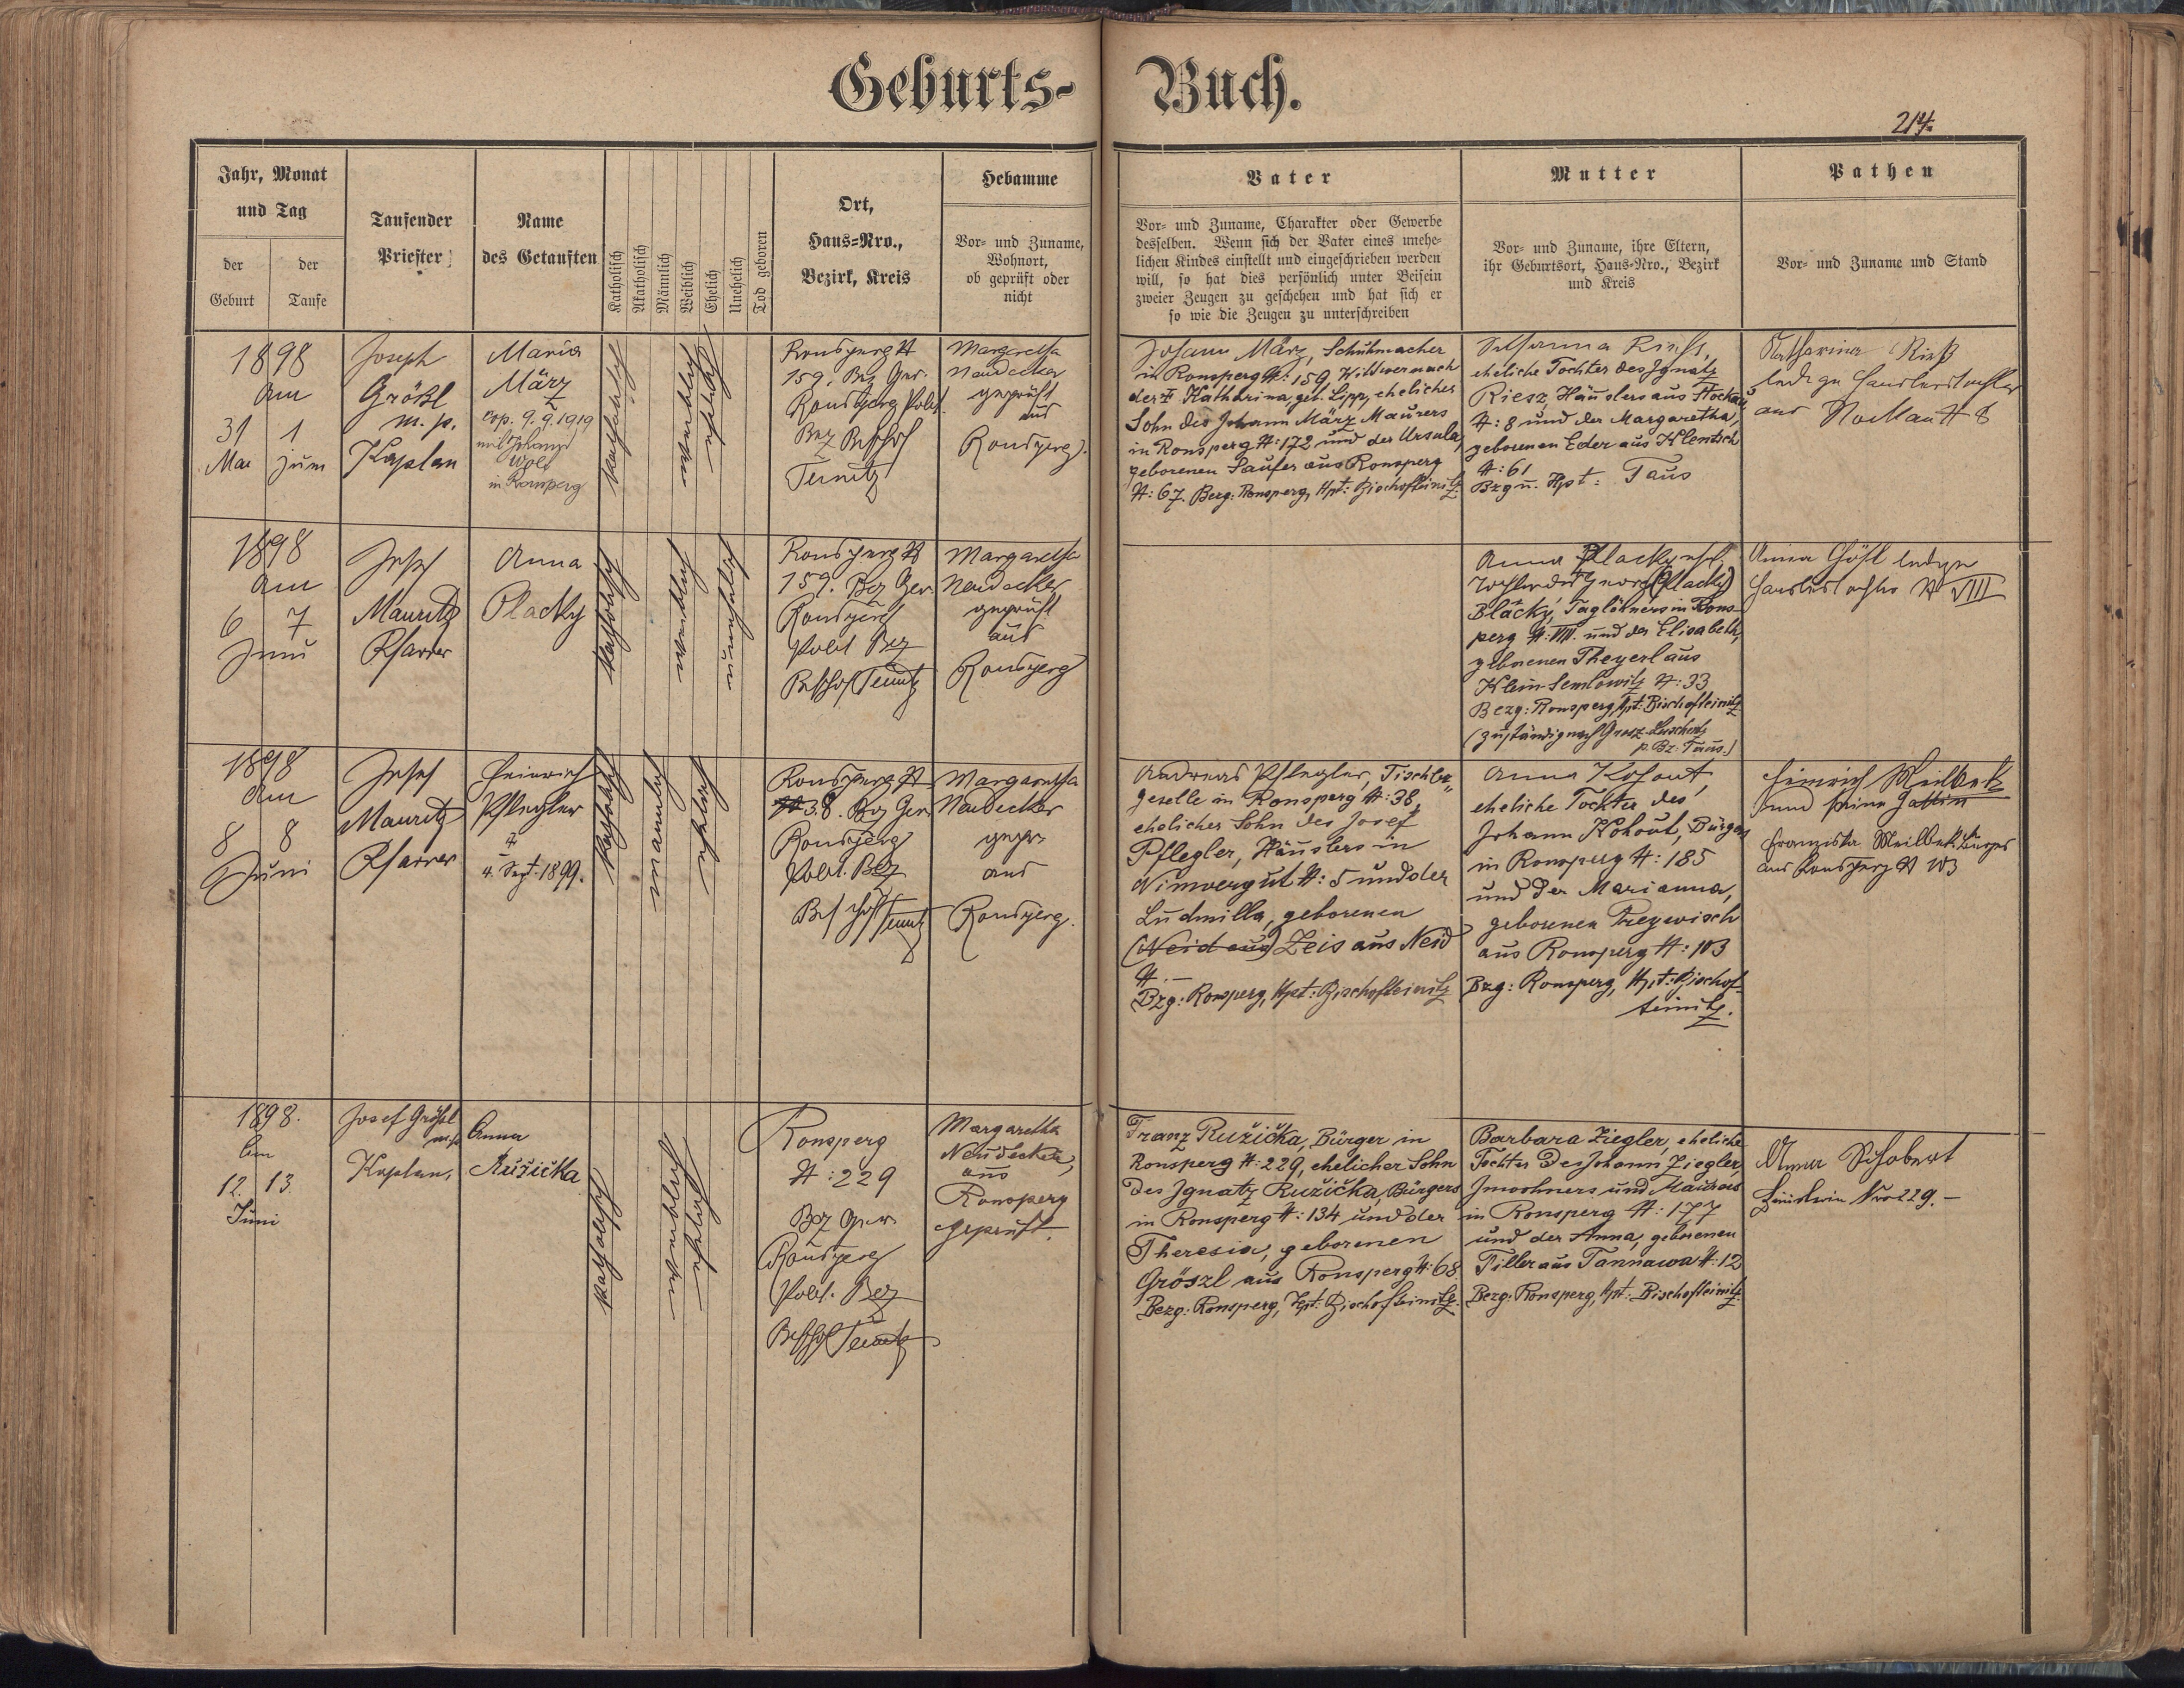 Geburts-
Buch.
214.
Jahr, Monat
und Tag
der
Geburt
der
Taufe
Taufender
Priester
Name
des Getauften
Katholisch
Akatholisch
Männlich
Weiblich
Ehelich
Unehelich
Tod geboren
Ort,
Haus=Nro.,
Bezirk, Kreis
Hebamme
Vor= und Zuname,
Wohnort,
ob geprüft oder
nicht
Vater
Vor= und Zuname, Charakter oder Gewerbe
desselben. Wenn sich der Vater eines unehe=
lichen Kindes einstellt und eingeschrieben werden
will, so hat dies persönlich unter Beisein
zweier Zeugen zu geschehen und hat sich er
so wie die Zeugen zu unterschreiben
Mutter
Vor= und Zuname, ihre Eltern,
ihr Geburtsort, Haus=Nro., Bezirk
und Kreis
Pathen
Vor= und Zuname und Stand
1898
am
31 1
Mai Juni
Joseph
Größl
m. p.
Kaplan
Maria
März
cop. 9.9.1919
mit Johann
in Ronsperg
katholisch
weiblich
ehelich
Ronsperg #
159. Bez Ger.
Ronsperg Polit.
Bez Bischof
Teinitz
Margaretha
Neudecker
geprüft
aus
Ronsperg.
Johann März, Schuhmacher
in Ronsperg #: 159, Wittwer nach
der † Katharina, geb. Lipp, ehelicher
Sohn des Johann März Maurers
in Ronsperg #: 172 und der Ursula,
geborenen Saufer aus Ronsperg
#: 67. Bezg: Ronsperg, Hpt: Bischofteinitz
Susanna
eheliche Tochter des Ignatz
Riesz, Häuslers aus Stockau
#: 8 und der Margaretha,
geborenen Eder aus Klentsch
#: 61
Bzg u. Hpt: Taus
Katharina Rieß
ledige Häuslerstochter
aus Stockau # 8
1898
am
6 7
Juni
Josef
Mauritz
Pfarrer
Anna
Placky
katholisch
weiblich
unehelich
Ronsperg #
159. Bez Ger.
Ronsperg
Polit Bez
Bischof Teinitz
Margaretha
Neudecker
geprüft
aus
Ronsperg
Anna Placky, ehel.
Tochter des Georg (Placky)
Blačky, Taglöhners in Rons-
perg #: VIII. und der Elisabeth,
geborenen Theyerl aus
Klein-Semlowitz #: 33
Bezg: Ronsperg, Hpt: Bischofteinitz
(zuständig nach Grosz-
p. Bz: Taus.)
Anna Gößl ledige
Häuslerstochter # VIII
1898
am
8 8
Juni
Josef
Mauritz
Pfarrer
Heinrich
Pflegler
†
4. Sept. 1899.
katholisch
männlich
ehelich
Ronsperg #
38. Bez Ger.
Ronsperg
Polit. Bez
Bischof Teinitz
Margaretha
Neudecker
gepr.
aus
Ronsperg.
Andreas Pflegler, Tischler-
geselle in Ronsperg #: 38,
ehelicher Sohn des Josef
Pflegler, Häuslers in
Nimvorgut #: 5 und der
Ludmilla, geborenen
(Neid aus) Zeis aus Neid
#: —
Bzg: Ronsperg, Hpt: Bischofteinitz
Anna Kohout,
eheliche Tochter des
Johann Kohout, Bürgers
in Ronsperg #: 185
und der Marianna,
geborenen Preywisch
aus Ronsperg #: 103
Bzg: Ronsperg, Hpt: Bischof-
teinitz.
Heinrich Meilbek
und seine Gattin
Franziska Meilbek Bürger
aus Ronsperg # 103
1898.
Am
12. 13.
Juni
Josef Größl
m. p.
Kaplan,
Anna
Růžička
katholisch
weiblich
ehelich
Ronsperg
#: 229
Bez Ger.
Ronsperg
Polit. Bez
Bischof Teinitz
Margaretha
Neudecker,
aus
Ronsperg
geprüft.
Franz Ružička, Bürger in
Ronsperg #: 229, ehelicher Sohn
des Ignatz Ružička, Bürgers
in Ronsperg #: 134 und der
Theresia, geborenen
Gröszl aus Ronsperg #: 68
Bezg: Ronsperg, Hpt: Bischofteinitz.
Barbara Ziegler, eheliche
Tochter des Johann Ziegler,
Inwohners und Maurers
in Ronsperg #: 177
und der Anna, geborenen
Tiller aus Tannawa #: 12
Bezg: Ronsperg, Hpt: Bischofteinitz.
Anna Schobert
Häuslerin Nro 229. —